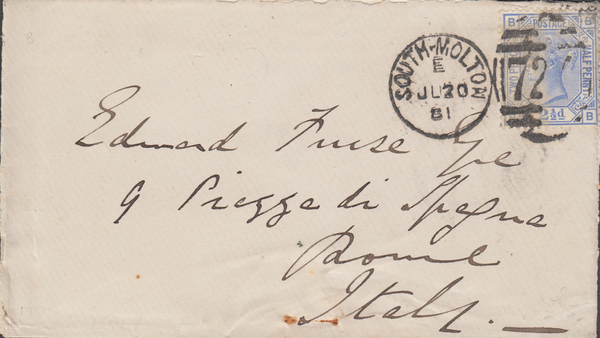 B
SOUTH-MOLTON
E
JU 20
81
72
B POSTAGE
HALF PENNY
2½d
B
Edward Furse Esqe
9 Piazza di Spagna
Rome
Italy. —